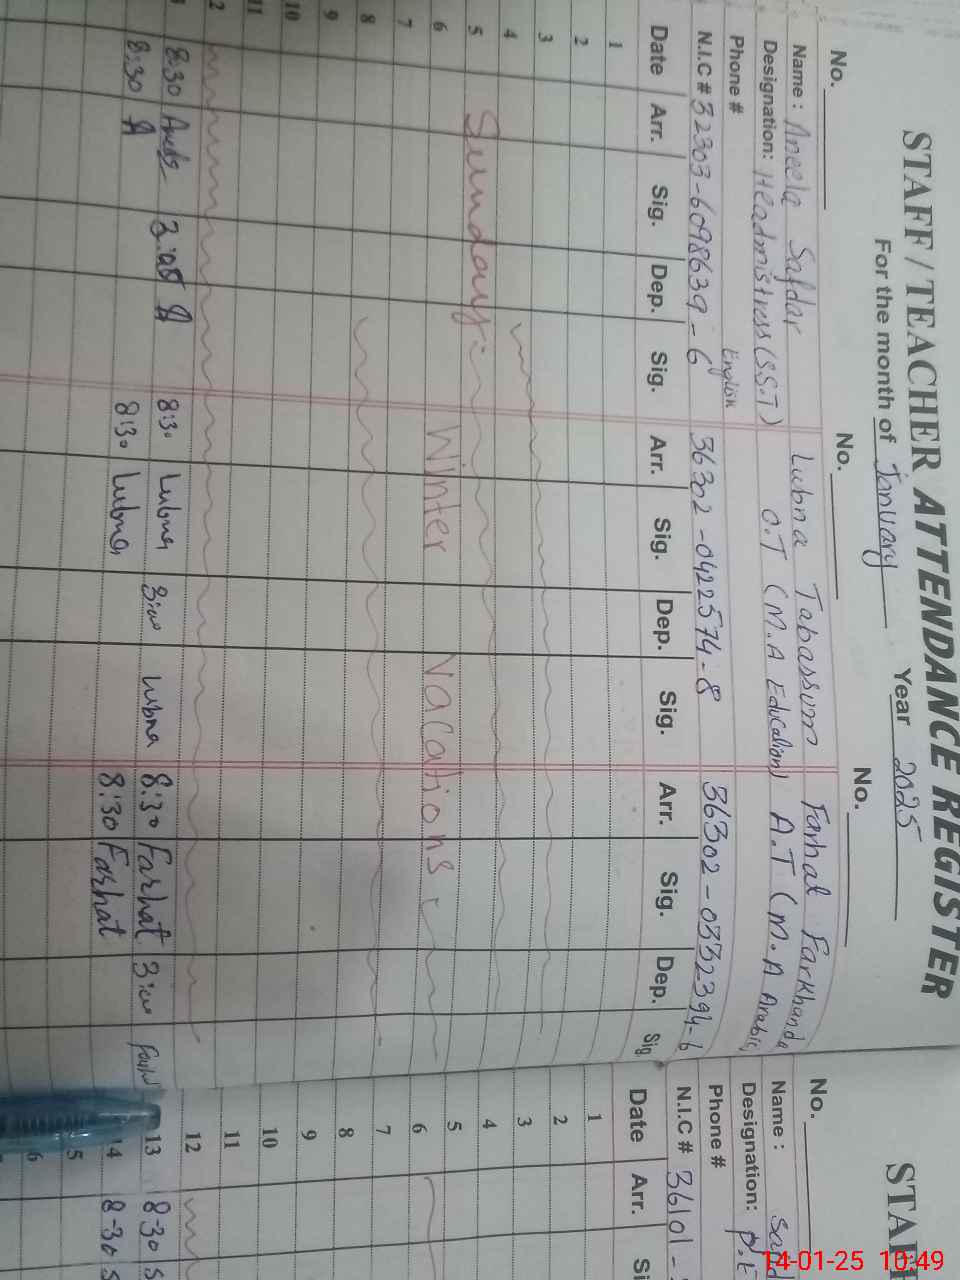 STAFF / TEACHER ATTENDANCE REGISTER
For the month of January Year 2025
No. No. No.
Name : Aneela Safdar Lubna Tabassum Farhat Farkhanda
Designation: Headmistress (S.S.T) C.T (M.A Education) A.T (M.A Arabic,
Phone # English
N.I.C # 32303-6098639-6 36302-0422574-8 36302-0332394-6
Date Arr. Sig. Dep. Sig. Arr. Sig. Dep. Sig. Arr. Sig. Dep. Sig
1
2
3
4
5 Sunday:
6 Winter Vacations
7
8
9
10
11
2
8:30 8:30 Lubna 3:00 Lubna 8:30 Farhat 3:00
8:30 8:30 Lubna 8:30 Farhat
STAF
No.
Name :
Designation:
Phone #
N.I.C # 36101-
Date Arr. Si
1
2
3
4
5
6
7
8
9
10
11
12
13 8-30 S
14 8-30 S
5
6
14-01-25 10:49